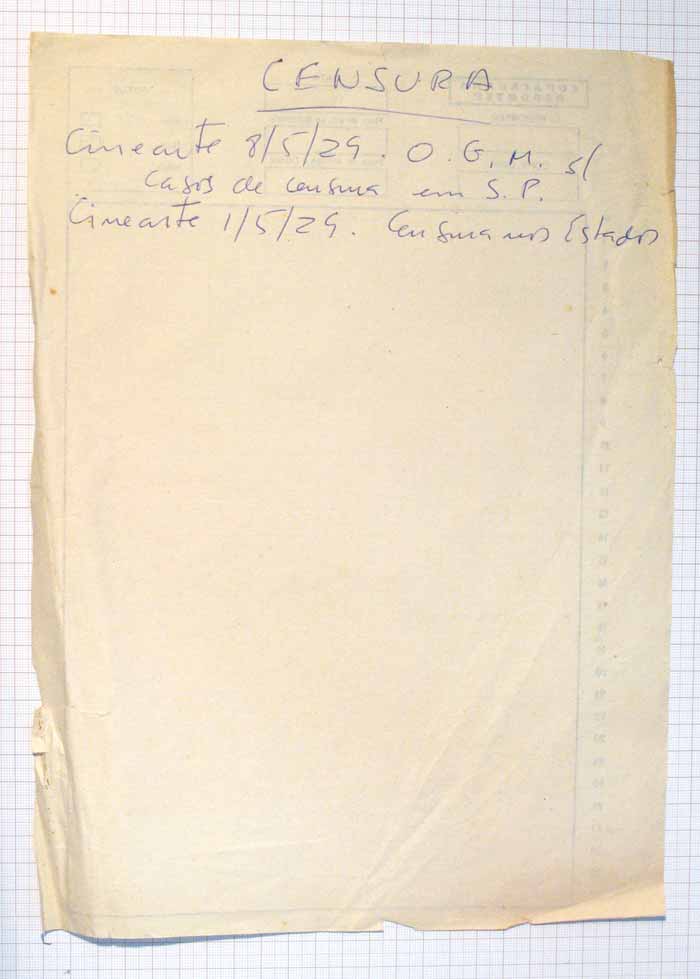 CENSURA
Cinearte 8/5/29. O.G.M. s/
Casos de censura em S.P.
Cinearte 1/5/29. Censura nos Estados